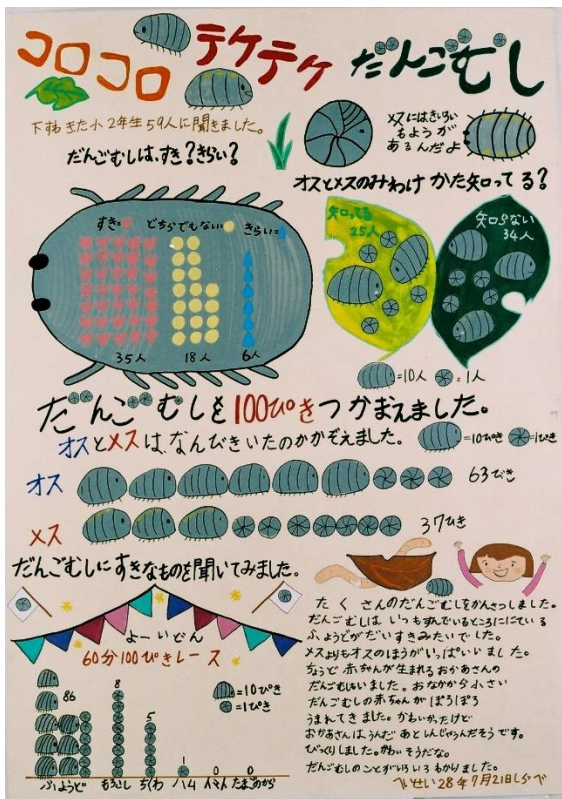 コロコロ テケテケ だんごむし
下すわきた小2年生59人に聞きました。
だんごむしは、すき？きらい？
メスにはきいろい
もようが
あるんだよ
オスとメスのみわけかた知ってる？
すき= どちらでもない= きらい=
35人 18人 6人
知ってる
25人
知らない
34人
=10人 =1人
だんごむしを100ぴきつかまえました。
オスとメスは、なんびきいたのかかぞえました。
=10ぴき =1ぴき
オス 63びき
メス 37ひき
だんごむしにすきなものを聞いてみました。
よーいどん
60分100ぴきレース
=10ぴき
=1ぴき
86 8 5 1 0 0
ふようど もろこし ちくわ ハム たまごのから
たくさんのだんごむしをかんさつしました。
だんごむしは いつもすんでいるところににている
ふようどがだいすきみたいでした。
メスよりもオスのほうがいっぱいいました。
ちょうど赤ちゃんが生まれるおかあさんの
だんごむしもいました。おなかから小さい
だんごむしの赤ちゃんがぽろぽろ
うまれてきました。かわいかったけど
おかあさんはうんだあとしんじゃうんだそうです。
びっくりしました。かわいそうだな。
だんごむしのことがいろいろわかりました。
へいせい28年7月21日しらべ